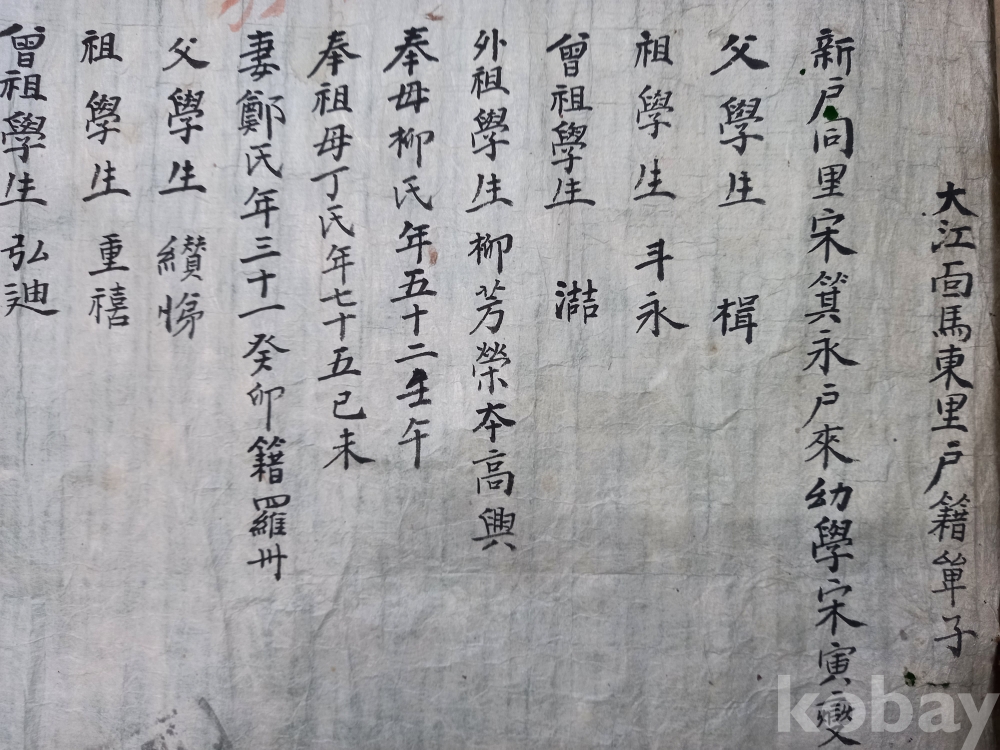 大江面馬東里戶籍單子
新戶同里宋箕永戶來幼學宋寅燮
父學生 楫
祖學生 斗永
曾祖學生 澔
外祖學生柳芳榮本高興
奉母柳氏年五十二壬午
奉祖母丁氏年七十五己未
妻鄭氏年三十一癸卯籍羅州
父學生 纘悌
祖學生 重禧
曾祖學生弘迪
kobay